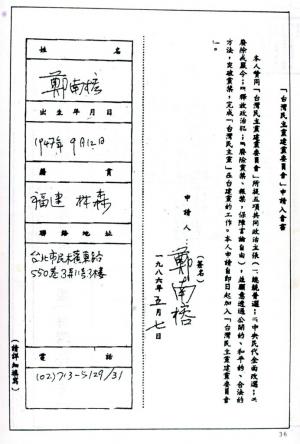 「台灣民主黨建黨委員會」申請入會書
本人贊同「台灣民主黨建黨委員會」所提五項共同政治主張㈠總統普選；㈡中央民代全面改選；㈢
廢除戒嚴令；㈣釋放政治犯；㈤廢除黨禁、報禁，保障言論自由），並願意透過公開的、和平的、合法的
方法，突破黨禁，完成「台灣民主黨」在台建黨的工作。本人申請自即日起加入「台灣民主黨建黨委員會
」。
申請人：鄭南榕
（簽名）
一九八六年五月七日
姓名
鄭南榕
出生年月日
1947年9月12日
籍貫
福建林森
聯絡地址
台北市民權東路
550巷3弄11號3樓
電話
(02)713-5129/31
（請詳細填寫）
36